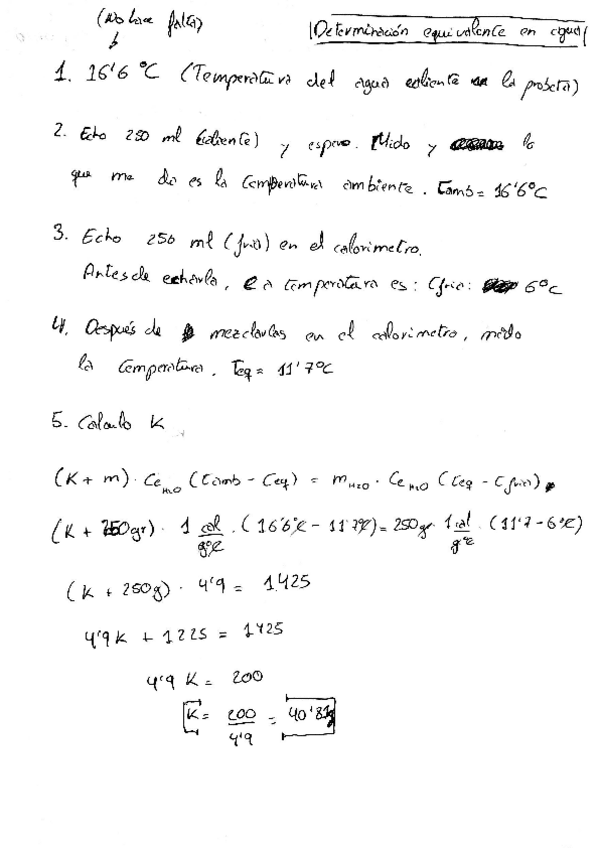 (No hace falta)
Determinación equivalente en agua
1. 16'6 °C (Temperatura del agua caliente en la probeta)
2. Echo 250 ml (caliente) y espero. Mido y lo
que me da es la temperatura ambiente. Tamb = 16'6°C
3. Echo 250 ml (fria) en el calorimetro.
Antes de echarla, la temperatura es: tfria: 6°C
4. Después de mezclarlas en el calorimetro, mido
la temperatura. Teq = 11'7°C
5. Calculo K
(K + m) · Ce H2O (tamb - teq) = m H2O · Ce H2O (teq - tfria)
(K + 250gr) · 1 cal/g°C · (16'6°C - 11'7°C) = 250gr · 1 cal/g°C · (11'7 - 6°C)
(K + 250g) · 4'9 = 1425
4'9K + 1225 = 1425
4'9 K = 200
K = 200/4'9 = 40'81g